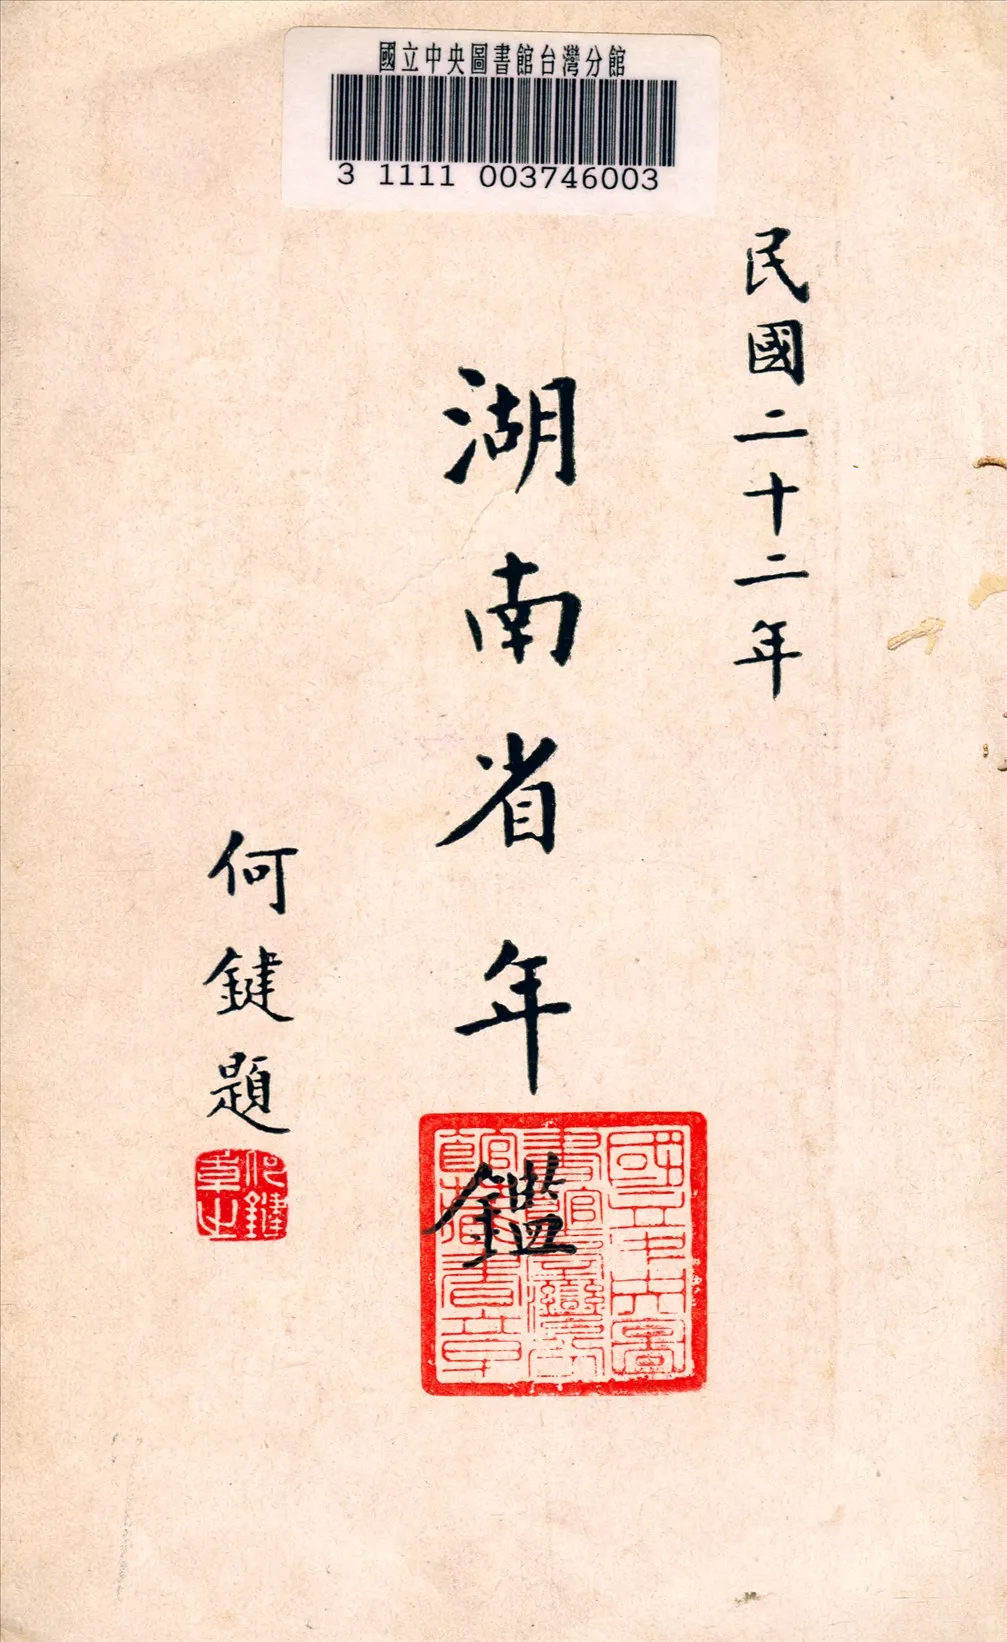 國立中央圖書館台灣分館
3 1111 003746003
民國二十二年
湖南省年鑑
何鍵題
何鍵之章
國立中央圖
書館臺灣分
館藏書章